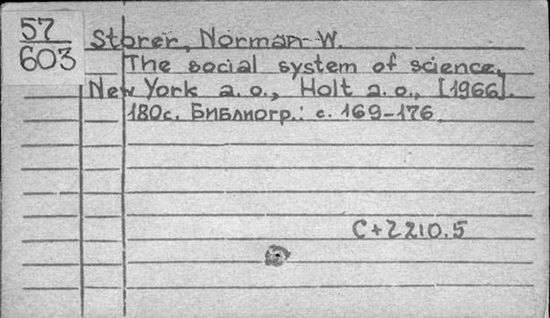 57
603
Storer, Norman W.
The social system of science.
New York a.o., Holt a.o., [1966].
180с. Библиогр.: с. 169-176
C+2210.5